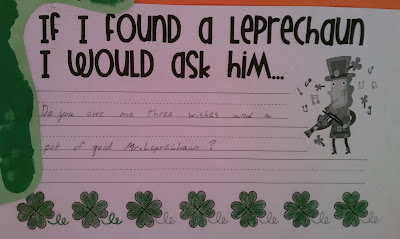 If I found a Leprechaun
I would ask him...
Do you owe me three wishes and a
pot of gold Mr. Leprechaun ?